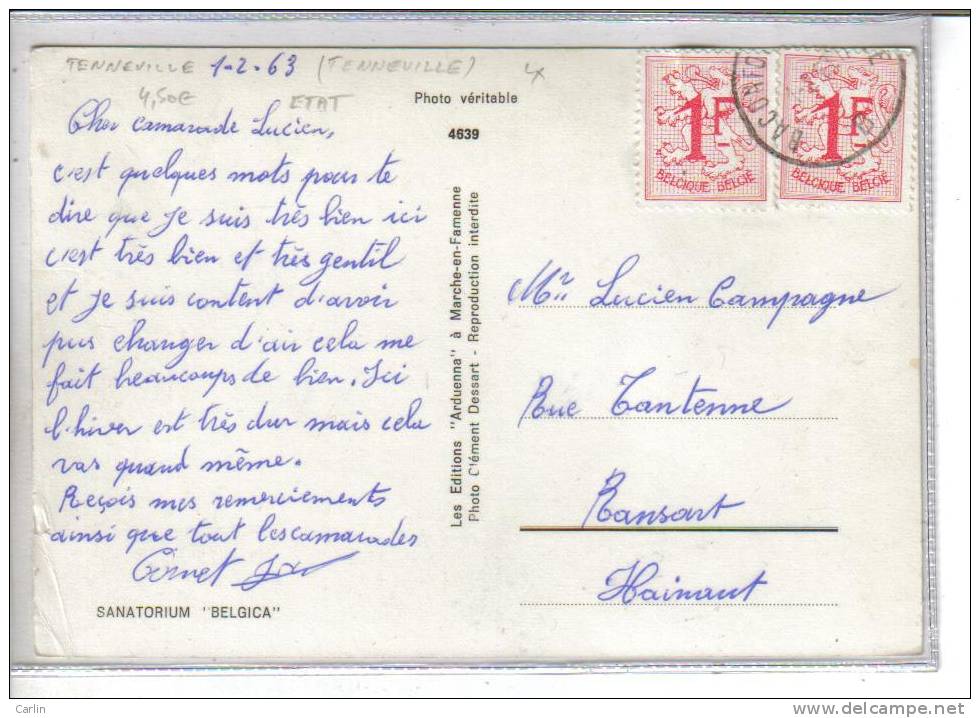 TENNEVILLE 1-2-63 (TENNEVILLE)
4,50€ ETAT
Cher camarade Lucien,
c'est quelques mots pour te
dire que je suis très bien ici
c'est très bien et très gentil
et je suis content d'avoir
pus changer d'air cela me
fait beaucoups de bien. Ici
l'hiver est très dur mais cela
vas quand même.
Reçois mes remerciements
ainsi que tout les camarades
Cornet
SANATORIUM "BELGICA"
Photo véritable
4639
Les Editions "Arduenna" à Marche-en-Famenne
Photo Clément Dessart - Reproduction interdite
1F
BELGIQUE BELGIË
1F
BELGIQUE BELGIË
Mr Lucien Campagne
Rue Tantenne
Ransart
Hainaut
Carlin
www.delcampe.net